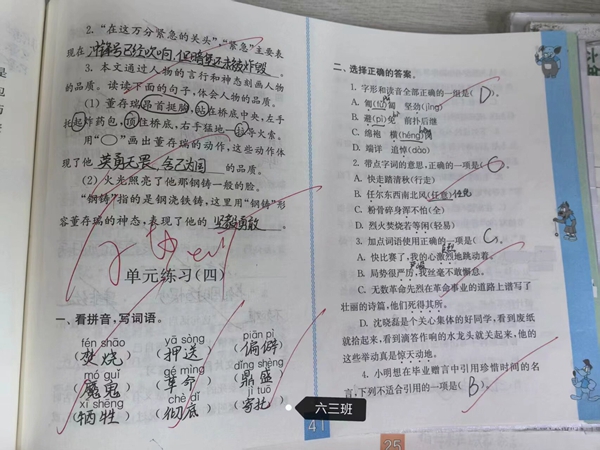 2. “在这万分紧急的关头”，“紧急”主要表
现在冲锋号已经吹响，但暗堡还未被炸毁。
3. 本文通过人物的言行和神态刻画人物
的品质。读读下面的句子，体会人物的品质。
(1) 董存瑞昂首挺胸，站在桥底中央，左手
托起炸药包，顶住桥底，右手猛地一拉导火索。
用“○”画出董存瑞的动作，这些动作体
现了他英勇无畏、舍己为国的品质。
(2) 火光照亮了他那钢铸一般的脸。
“钢铸”指的是钢浇铁铸，这里用“钢铸”形
容董存瑞的神态，表现了他的坚毅勇敢。
单元练习(四)
一、看拼音，写词语。
fén shāo yā sòng piān pì
(焚烧) (押送) (偏僻)
mó guǐ gé mìng dǐng shèng
(魔鬼) (革命) (鼎盛)
xī shēng chè dǐ jì tuō
(牺牲) (彻底) (寄托)
41
二、选择正确的答案。
1. 字形和读音全部正确的一组是( D )。
A. 匍(fǔ)匐 坚劲(jìng)
B. 避(pì)免 前扑后继
C. 绵袍 横(héng)祸
D. 端详 追悼(dào)
2. 带点字词的意思，正确的一项是( C )。
A. 快走踏清秋(行走)
B. 任尔东西南北风(任意) 任凭
C. 粉骨碎身浑不怕(全)
D. 烈火焚烧若等闲(轻易)
3. 加点词语使用正确的一项是( C )。
A. 快比赛了，我的心激烈地跳动着。
B. 局势很严厉，我丝毫不敢懈怠。
C. 无数革命先烈在革命事业的道路上谱写了
壮丽的诗篇，他们死得其所。
D. 沈晓磊是个关心集体的好同学，看到废纸
就拾起来，看到滴答作响的水龙头就关起来，他的
这些举动真是惊天动地。
4. 小明想在毕业赠言中引用珍惜时间的名
言，下列不适合引用的一项是( B )。
六三班
25